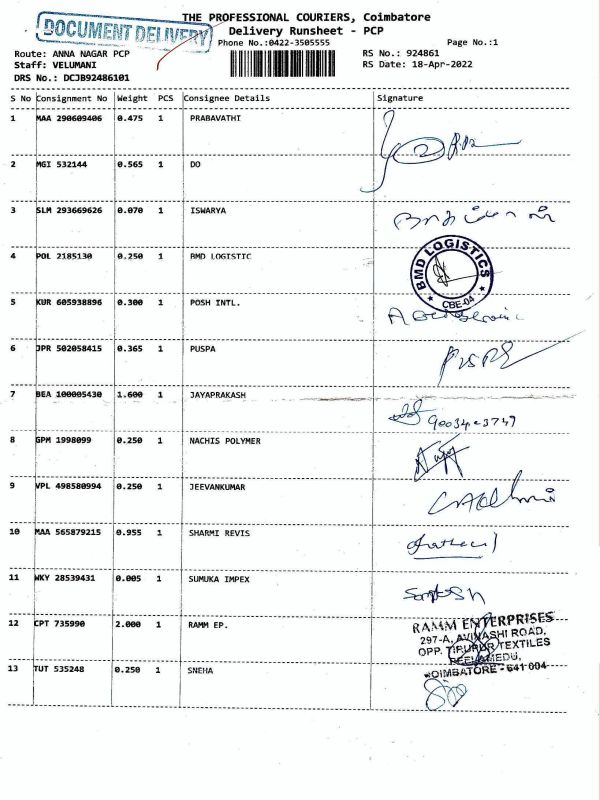 THE PROFESSIONAL COURIERS, Coimbatore
DOCUMENT DELIVERY
Delivery Runsheet - PCP
Phone No.:0422-3505555
Page No.:1
Route: ANNA NAGAR PCP
RS No.: 924861
Staff: VELUMANI
RS Date: 18-Apr-2022
DRS No.: DCJB92486101
S No Consignment No Weight PCS Consignee Details Signature
1 MAA 290609406 0.475 1 PRABAVATHI
2 MGI 532144 0.565 1 DO
3 SLM 293669626 0.070 1 ISWARYA
4 POL 2185130 0.250 1 BMD LOGISTIC
BMD LOGISTICS
CBE-04
5 KUR 605938896 0.300 1 POSH INTL.
6 JPR 502058415 0.365 1 PUSPA
7 BEA 100005430 1.600 1 JAYAPRAKASH
8 GPM 1998099 0.250 1 NACHIS POLYMER
9 VPL 498580994 0.250 1 JEEVANKUMAR
10 MAA 565879215 0.955 1 SHARMI REVIS
11 WKY 28539431 0.005 1 SUMUKA IMPEX
Santosh
12 CPT 735990 2.000 1 RAMM EP.
RAMM ENTERPRISES
297-A, AVINASHI ROAD,
OPP. TIRUPUR TEXTILES
PEELAMEDU,
COIMBATORE - 641 004
13 TUT 535248 0.250 1 SNEHA